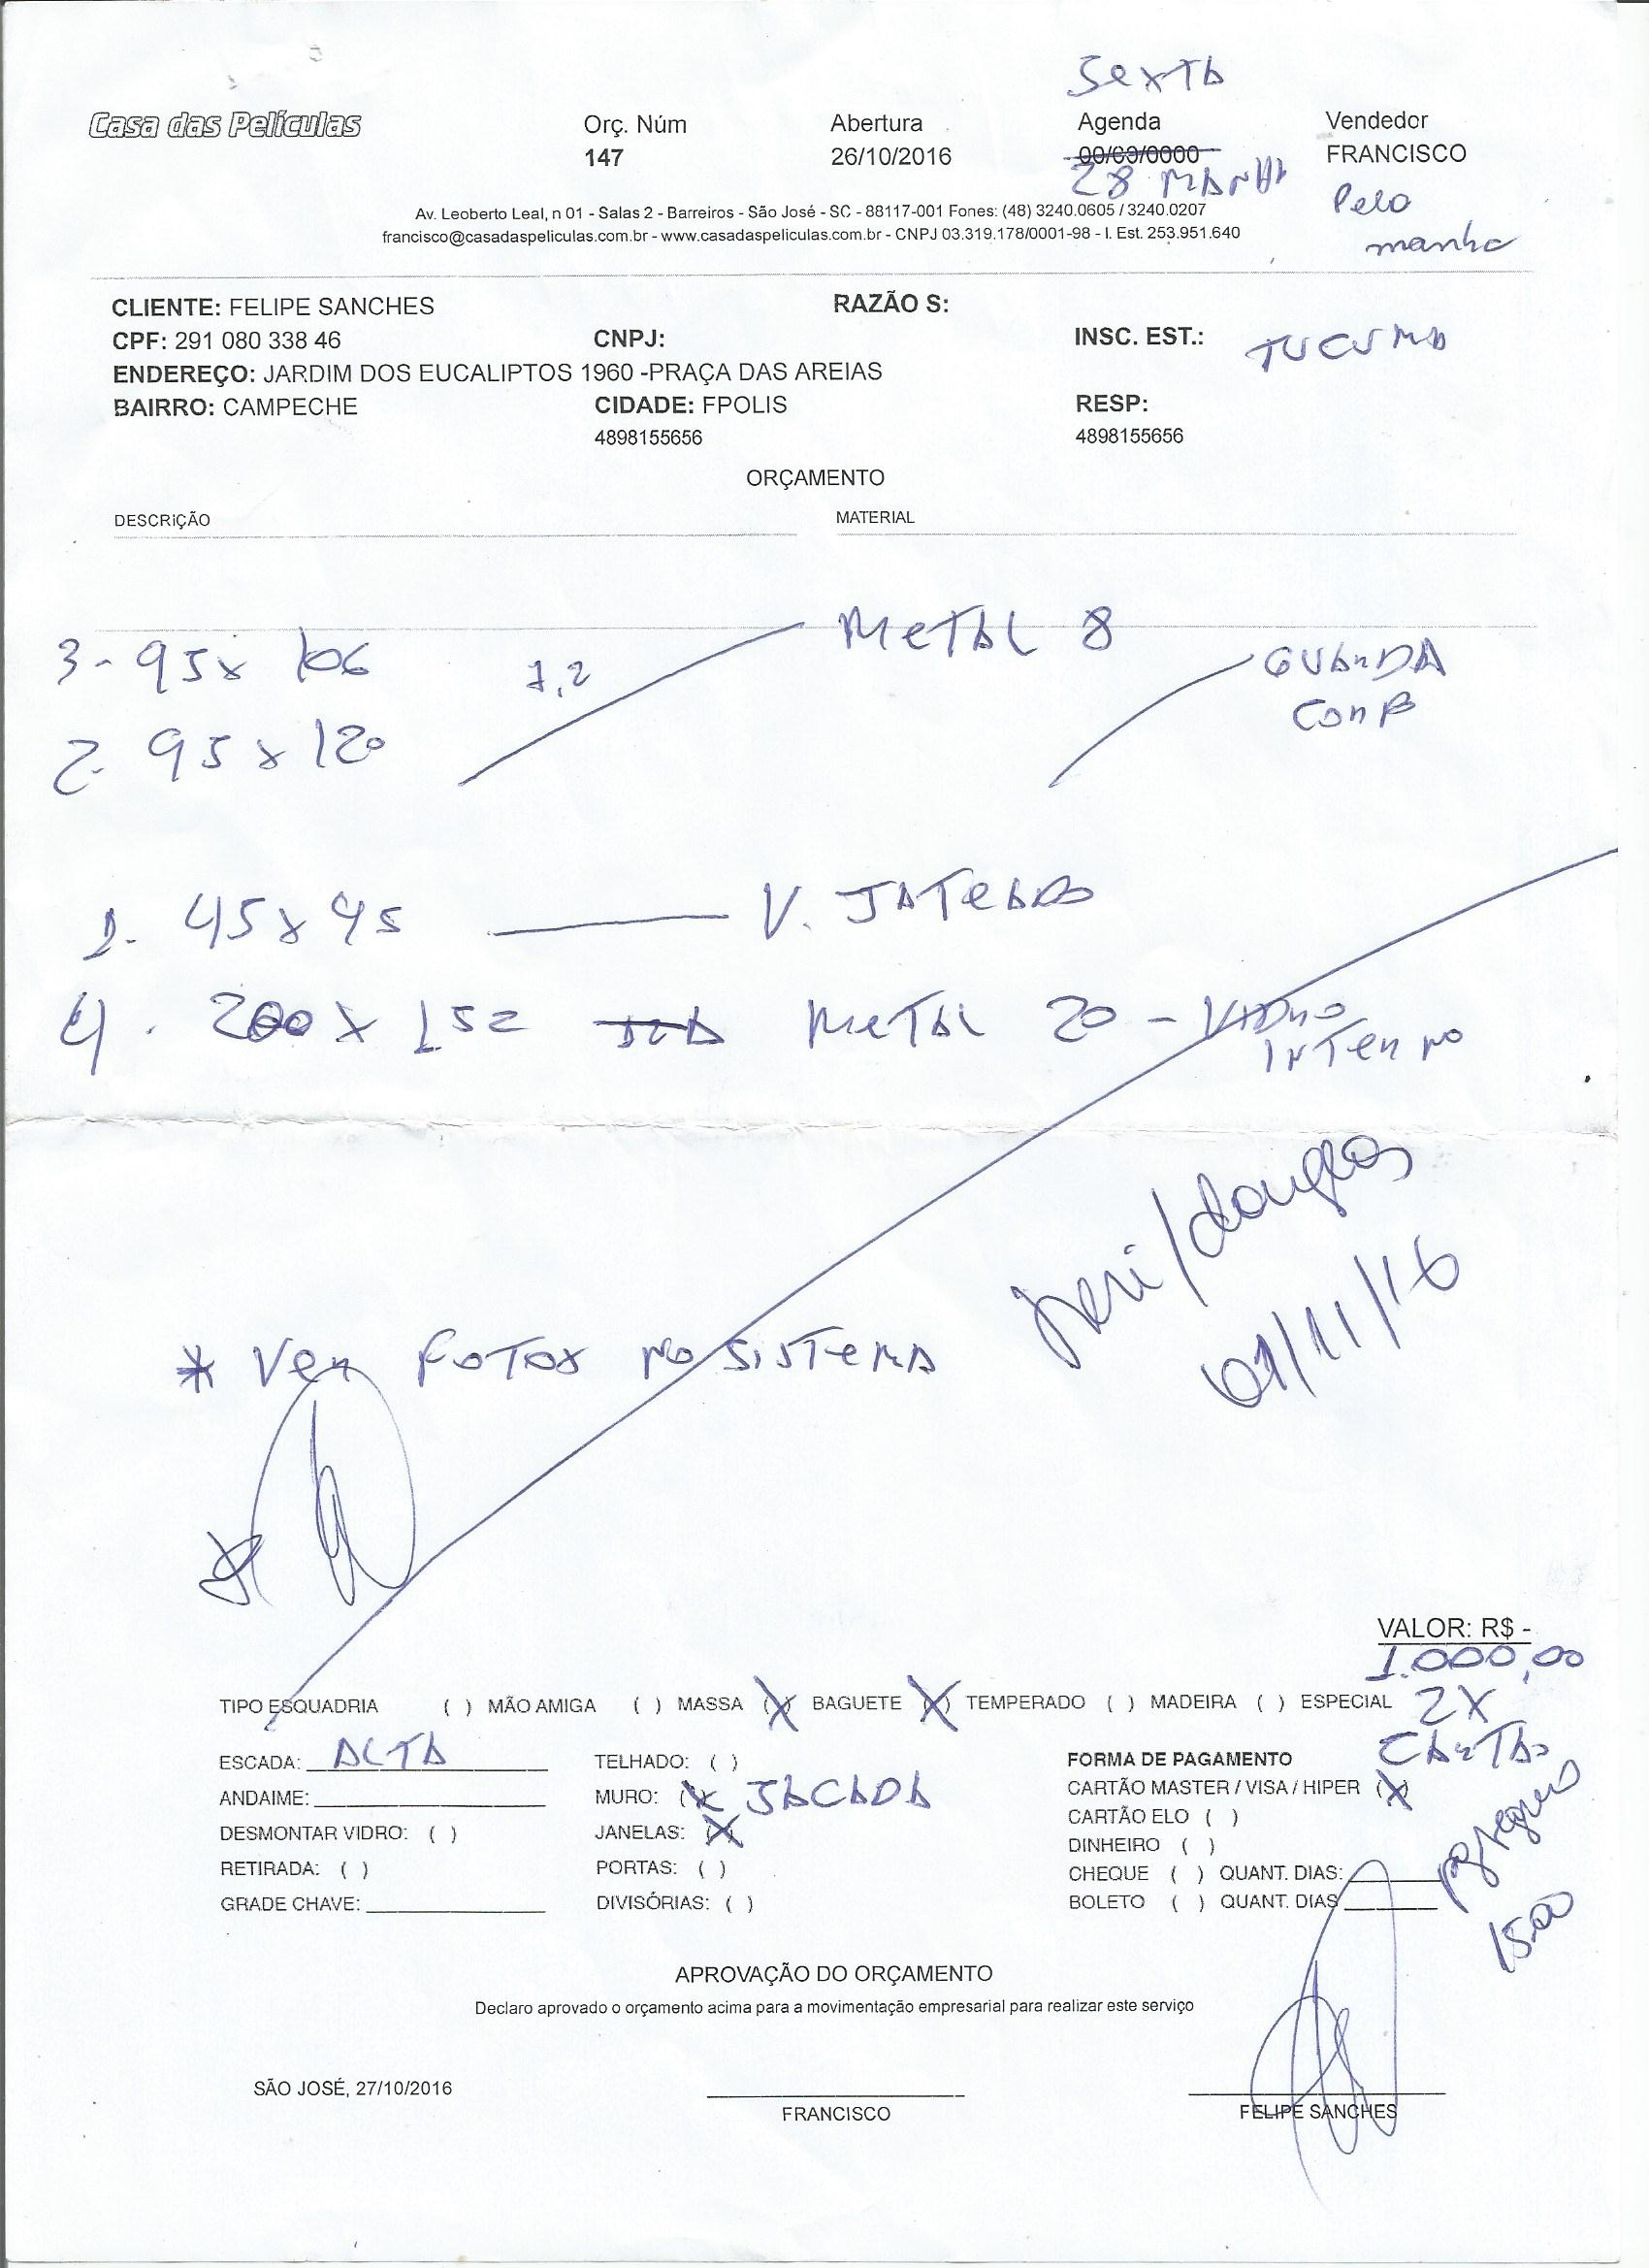 Sexta
Casa das Películas Orç. Núm Abertura Agenda Vendedor
147 26/10/2016 00/00/0000 FRANCISCO
28 MANHÃ Pela
manha
Av. Leoberto Leal, n 01 - Salas 2 - Barreiros - São José - SC - 88117-001 Fones: (48) 3240.0605 / 3240.0207
francisco@casadaspeliculas.com.br - www.casadaspeliculas.com.br - CNPJ 03.319.178/0001-98 - I. Est. 253.951.640
CLIENTE: FELIPE SANCHES RAZÃO S:
CPF: 291 080 338 46 CNPJ: INSC. EST.: TUCUMA
ENDEREÇO: JARDIM DOS EUCALIPTOS 1960 -PRAÇA DAS AREIAS
BAIRRO: CAMPECHE CIDADE: FPOLIS RESP:
4898155656 4898155656
ORÇAMENTO
DESCRIÇÃO MATERIAL
3 - 95 x 106 METAL 8
GUARDA
CORP
2. 95 x 120
1. 45 x 45 V. JATEADO
4. 200 x 152 METAL 20 - VIDRO
INTERNO
/douglas
01/11/16
* Ver FOTOS NO SISTEMA
VALOR: R$ -
1.000,00
TIPO ESQUADRIA ( ) MÃO AMIGA ( ) MASSA (X) BAGUETE (X) TEMPERADO ( ) MADEIRA ( ) ESPECIAL 2X
CARTAO
ESCADA: ALTA TELHADO: ( ) FORMA DE PAGAMENTO
ANDAIME: MURO: (X) SACADA CARTÃO MASTER / VISA / HIPER (X)
DESMONTAR VIDRO: ( ) JANELAS: (X) CARTÃO ELO ( )
DINHEIRO ( )
RETIRADA: ( ) PORTAS: ( ) CHEQUE ( ) QUANT. DIAS:
GRADE CHAVE: DIVISÓRIAS: ( ) BOLETO ( ) QUANT. DIAS
APROVAÇÃO DO ORÇAMENTO
Declaro aprovado o orçamento acima para a movimentação empresarial para realizar este serviço
SÃO JOSÉ, 27/10/2016
FRANCISCO FELIPE SANCHES